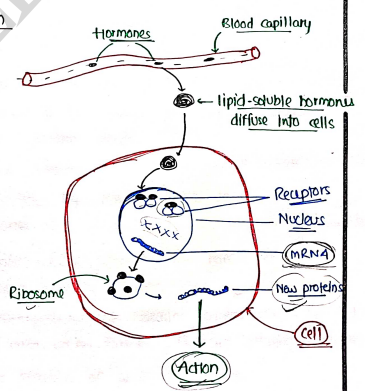 Hormones
Blood capillary
lipid-soluble hormones
diffuse into cells
Receptors
Nucleus
xxxx
mRNA
Ribosome
New proteins
Cell
Action